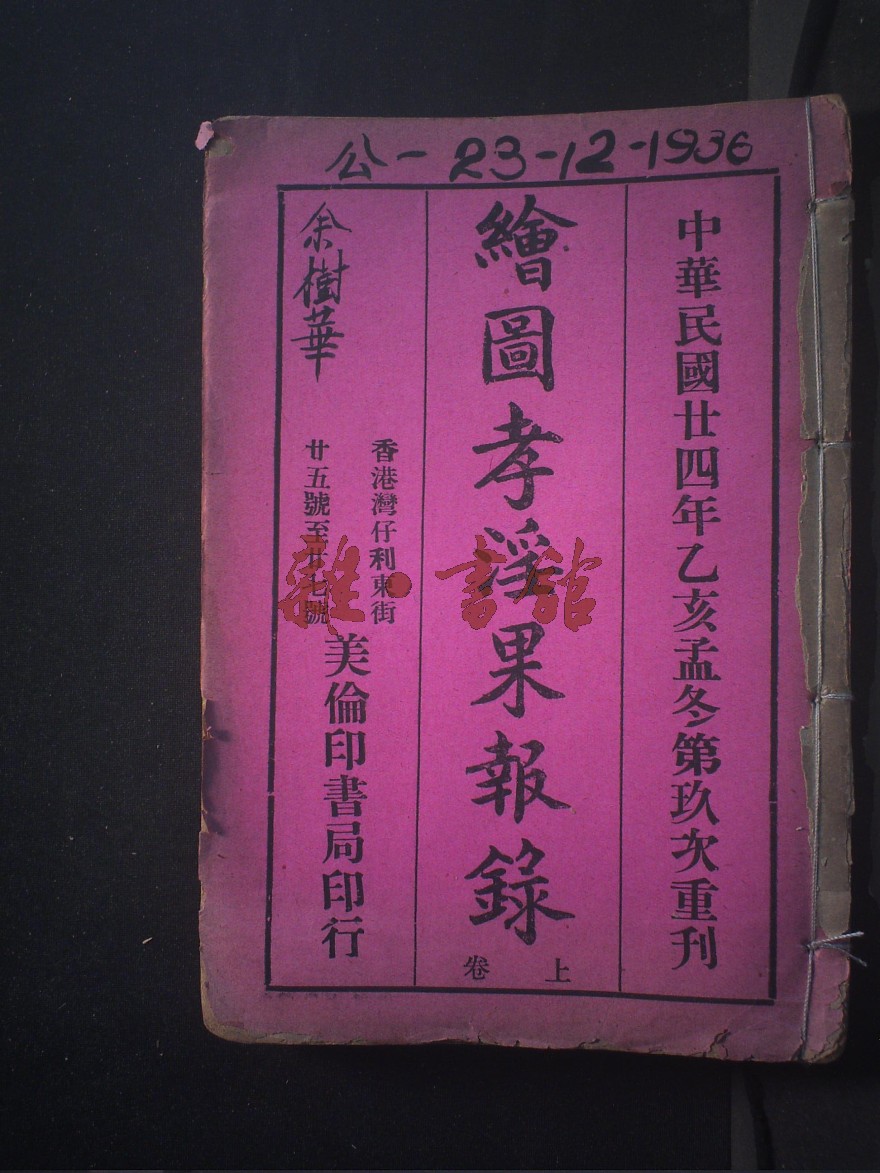 公-23-12-1936
中華民國廿四年乙亥孟冬第玖次重刊
繪圖孝淫果報錄
上卷
余樹華
香港灣仔利東街
廿五號至廿七號
美倫印書局印行
雜·書館